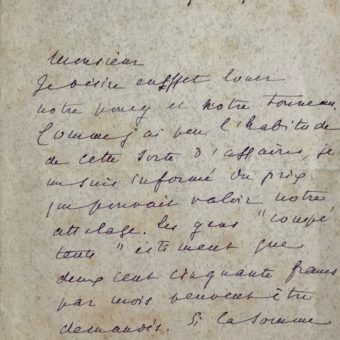 Monsieur
Je désire en effet louer
notre poney et notre tonneau.
Comme j'ai peu l'habitude
de cette sorte d'affaires, je
me suis informé du prix
que pouvait valoir notre
attelage. Les gens "compé
tents" estiment que
deux cent cinquante francs
par mois peuvent être
demandés. Si la somme